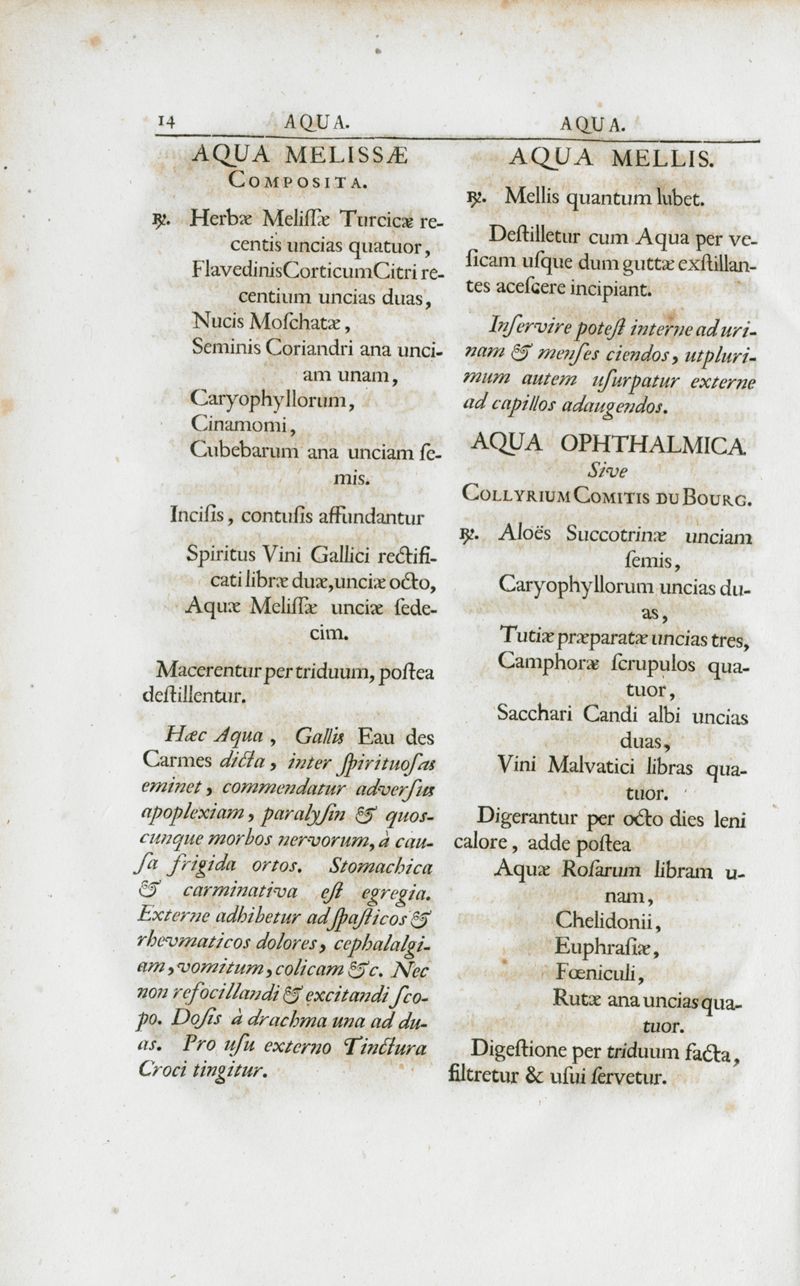 14 AQUA.
AQUA MELISSÆ
COMPOSITA.
℞. Herbæ Meliſſæ Turcicæ re-
centis uncias quatuor,
FlavedinisCorticumCitri re-
centium uncias duas,
Nucis Moſchatæ,
Seminis Coriandri ana unci-
am unam,
Caryophyllorum,
Cinamomi,
Cubebarum ana unciam ſe-
mis.
Inciſis, contuſis affundantur
Spiritus Vini Gallici rectifi-
cati libræ duæ,unciæ octo,
Aquæ Meliſſæ unciæ ſede-
cim.
Macerentur per triduum, poſtea
deſtillentur.
Hæc Aqua, Gallis Eau des
Carmes dicta, inter ſpirituoſas
eminet, commendatur adverſus
apoplexiam, paralyſin & quos-
cunque morbos nervorum, à cau-
ſa frigida ortos. Stomachica
& carminativa eſt egregia.
Externe adhibetur ad ſpaſticos &
rhevmaticos dolores, cephalalgi-
am, vomitum, colicam &c. Nec
non refocillandi & excitandi ſco-
po. Doſis à drachma una ad du-
as. Pro uſu externo Tinctura
Croci tingitur.
AQUA.
AQUA MELLIS.
℞. Mellis quantum lubet.
Deſtilletur cum Aqua per ve-
ſicam uſque dum guttæ exſtillan-
tes aceſcere incipiant.
Inſervire poteſt interne ad uri-
nam & menſes ciendos, utpluri-
mum autem uſurpatur externe
ad capillos adaugendos.
AQUA OPHTHALMICA
Sive
COLLYRIUM COMITIS DU BOURG.
℞. Aloës Succotrinæ unciam
ſemis,
Caryophyllorum uncias du-
as,
Tutiæ præparatæ uncias tres,
Camphoræ ſcrupulos qua-
tuor,
Sacchari Candi albi uncias
duas,
Vini Malvatici libras qua-
tuor.
Digerantur per octo dies leni
calore, adde poſtea
Aquæ Roſarum libram u-
nam,
Chelidonii,
Euphraſiæ,
Fœniculi,
Rutæ ana uncias qua-
tuor.
Digeſtione per triduum facta,
filtretur & uſui ſervetur.